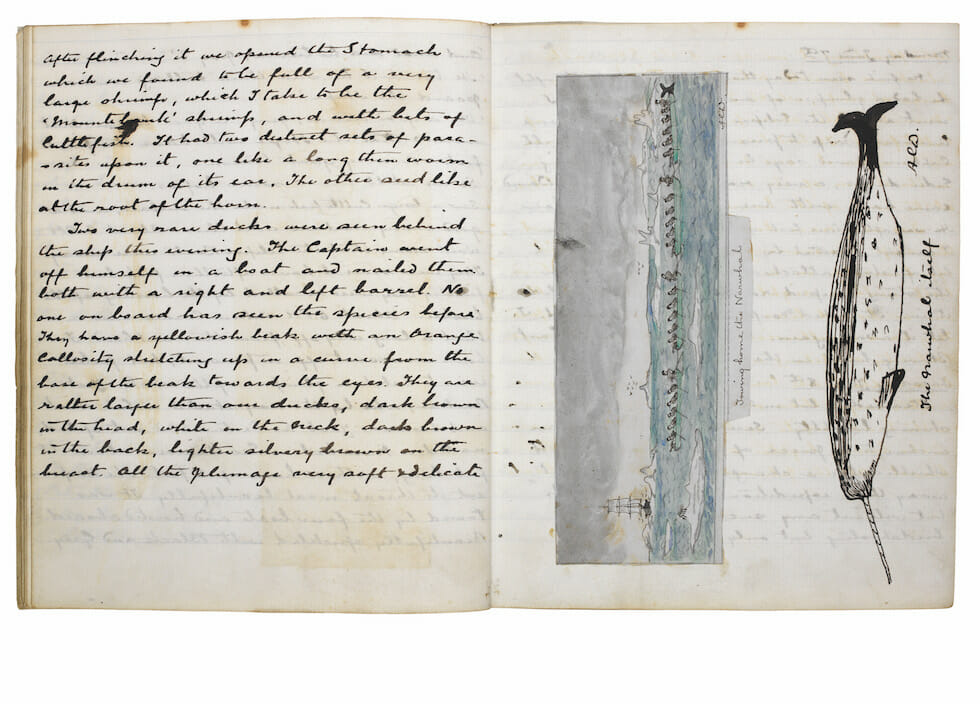 After flinching it we opened the Stomach
which we found to be full of a very
large shrimp, which I take to be the
'Mountebank' shrimp, and with bits of
Cuttlefish. It had two distinct sets of para-
-sites upon it, one like a long thin worm
in the drum of its ear, The other seed like
at the root of the horn.
Two very rare ducks were seen behind
the ship this evening. The Captain went
off himself in a boat and nailed them
both with a right and left barrel. No
one on board has seen the species before
They have a yellowish beak with an Orange
Callosity stretching up in a curve from the
base of the beak towards the eyes. They are
rather larger than our ducks, dark brown
in the head, white in the neck, dark brown
in the back, lighter silvery brown on the
breast. All the plumage very soft & delicate
ACD.
Towing home the Narwhal
The Narwhal itself
ACD.